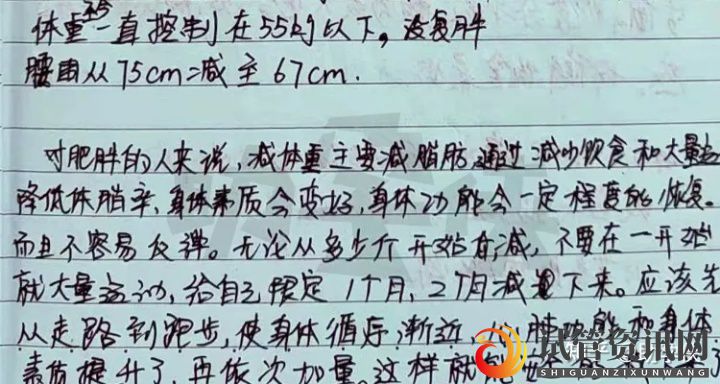 体重至今一直控制在55kg以下。没复胖
腰围从75cm减至67cm.
对肥胖的人来说,减体重主要减脂肪,通过减少饮食和大量运
降低体脂率,身体素质会变好,身体功能会一定程度的恢复。
而且不容易反弹。无论从多少斤开始减,不要在一开始
就大量运动,给自己限定1个月,2个月减下来。应该先
从走路到跑步,使身体循序渐近,心肺功能和身体
素质提升了,再依次加量。这样就能
试管资讯网
SHIGUANZIXUNWANG